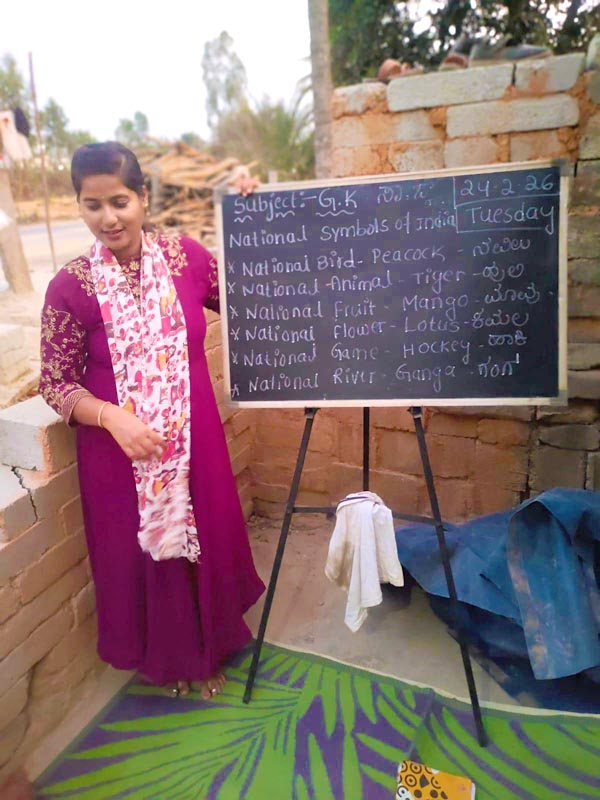 Subject:- G.K ಸಾ.ಜ್ಞ 24-2-26
Tuesday
National Symbols of India
* National Bird - Peacock ನವಿಲು
* National Animal - Tiger - ಹುಲಿ
* National Fruit - Mango - ಮಾವು
* National Flower - Lotus - ಕಮಲ
* National Game - Hockey - ಹಾಕಿ
* National River - Ganga - ಗಂಗೆ